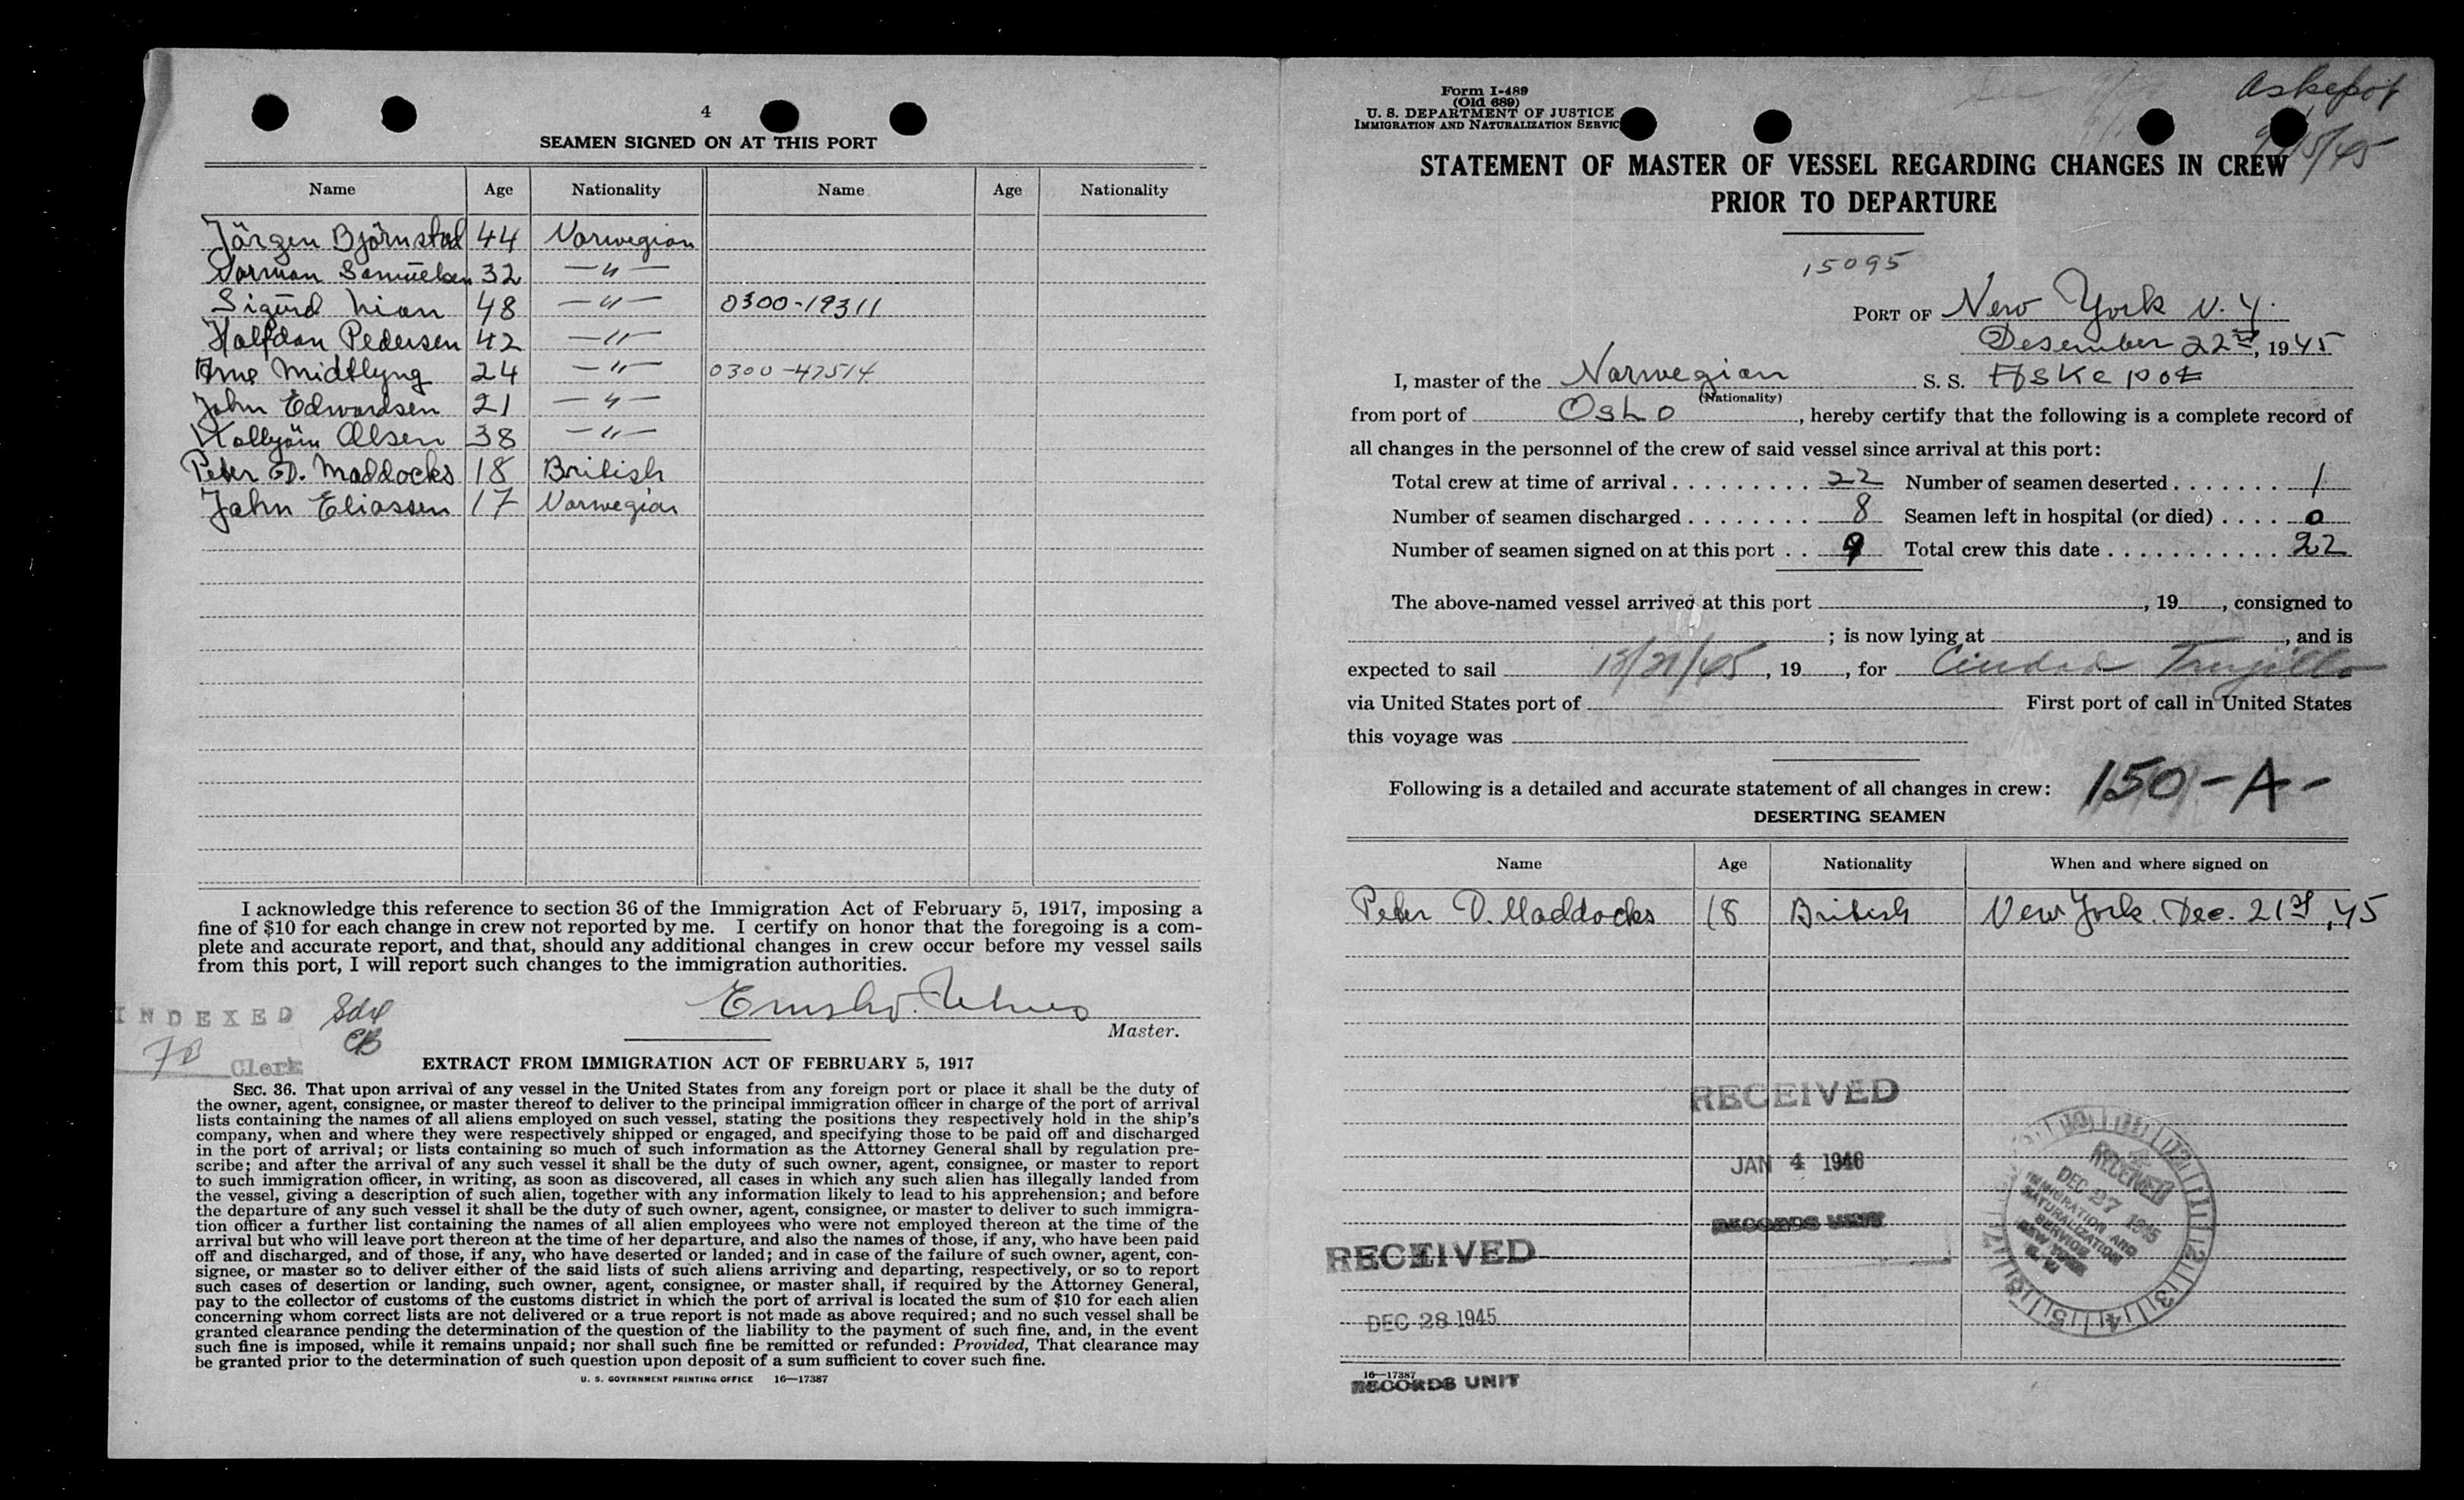 4
SEAMEN SIGNED ON AT THIS PORT
Name Age Nationality Name Age Nationality
Jörgen Björnstad 44 Norwegian
Norman Samuelsen 32 —"—
Sigurd 48 —"— 0300-19311
Halfdan Pedersen 42 —"—
Arne Midtlyng 24 —"— 0300-47514
John Edwardsen 21 —"—
Kolbjörn Olsen 38 —"—
Peter D. Maddocks 18 British
John Eliassen 17 Norwegian
I acknowledge this reference to section 36 of the Immigration Act of February 5, 1917, imposing a
fine of $10 for each change in crew not reported by me. I certify on honor that the foregoing is a com-
plete and accurate report, and that, should any additional changes in crew occur before my vessel sails
from this port, I will report such changes to the immigration authorities.
Master.
INDEXED
Clerk
EXTRACT FROM IMMIGRATION ACT OF FEBRUARY 5, 1917
SEC. 36. That upon arrival of any vessel in the United States from any foreign port or place it shall be the duty of
the owner, agent, consignee, or master thereof to deliver to the principal immigration officer in charge of the port of arrival
lists containing the names of all aliens employed on such vessel, stating the positions they respectively hold in the ship's
company, when and where they were respectively shipped or engaged, and specifying those to be paid off and discharged
in the port of arrival; or lists containing so much of such information as the Attorney General shall by regulation pre-
scribe; and after the arrival of any such vessel it shall be the duty of such owner, agent, consignee, or master to report
to such immigration officer, in writing, as soon as discovered, all cases in which any such alien has illegally landed from
the vessel, giving a description of such alien, together with any information likely to lead to his apprehension; and before
the departure of any such vessel it shall be the duty of such owner, agent, consignee, or master to deliver to such immigra-
tion officer a further list containing the names of all alien employees who were not employed thereon at the time of the
arrival but who will leave port thereon at the time of her departure, and also the names of those, if any, who have been paid
off and discharged, and of those, if any, who have deserted or landed; and in case of the failure of such owner, agent, con-
signee, or master so to deliver either of the said lists of such aliens arriving and departing, respectively, or so to report
such cases of desertion or landing, such owner, agent, consignee, or master shall, if required by the Attorney General,
pay to the collector of customs of the customs district in which the port of arrival is located the sum of $10 for each alien
concerning whom correct lists are not delivered or a true report is not made as above required; and no such vessel shall be
granted clearance pending the determination of the question of the liability to the payment of such fine, and, in the event
such fine is imposed, while it remains unpaid; nor shall such fine be remitted or refunded: Provided, That clearance may
be granted prior to the determination of such question upon deposit of a sum sufficient to cover such fine.
U. S. GOVERNMENT PRINTING OFFICE 16—17387
Form I-489
(Old 689)
U. S. DEPARTMENT OF JUSTICE
IMMIGRATION AND NATURALIZATION SERVIC
Askepot
STATEMENT OF MASTER OF VESSEL REGARDING CHANGES IN CREW
PRIOR TO DEPARTURE
15095
PORT OF New York N.Y.
Desember 22nd, 1945
I, master of the Norwegian S. S. Askepot
(Nationality)
from port of Oslo, hereby certify that the following is a complete record of
all changes in the personnel of the crew of said vessel since arrival at this port:
Total crew at time of arrival 22 Number of seamen deserted 1
Number of seamen discharged 8 Seamen left in hospital (or died) 0
Number of seamen signed on at this port 9 Total crew this date 22
The above-named vessel arrived at this port , 19 , consigned to
; is now lying at , and is
expected to sail , 19 , for Ciudad Trujillo
via United States port of First port of call in United States
this voyage was
Following is a detailed and accurate statement of all changes in crew: 150-A-
DESERTING SEAMEN
Name Age Nationality When and where signed on
Peter D. Maddocks 18 British New York. Dec. 21st, 45
RECEIVED
JAN 4 1946
RECORDS UNIT
RECEIVED
DEC 27 1945
IMMIGRATION AND
NATURALIZATION
SERVICE
NEW YORK
N. Y.
RECEIVED
DEC 28 1945
16—17387
RECORDS UNIT